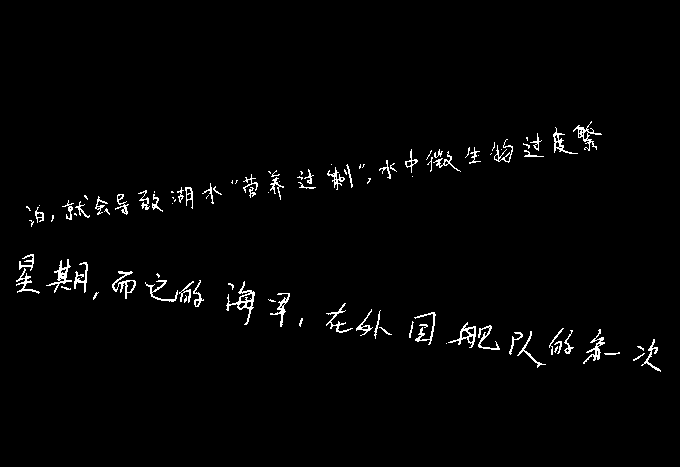 泊,就会导致湖水"营养过剩",水中微生物过度繁
星期,而它的海军,在外国舰队的系次